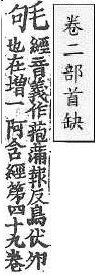 卷二部首缺
經音義作菢蒲報反鳥伏卯
也在增一阿含經第四十九卷